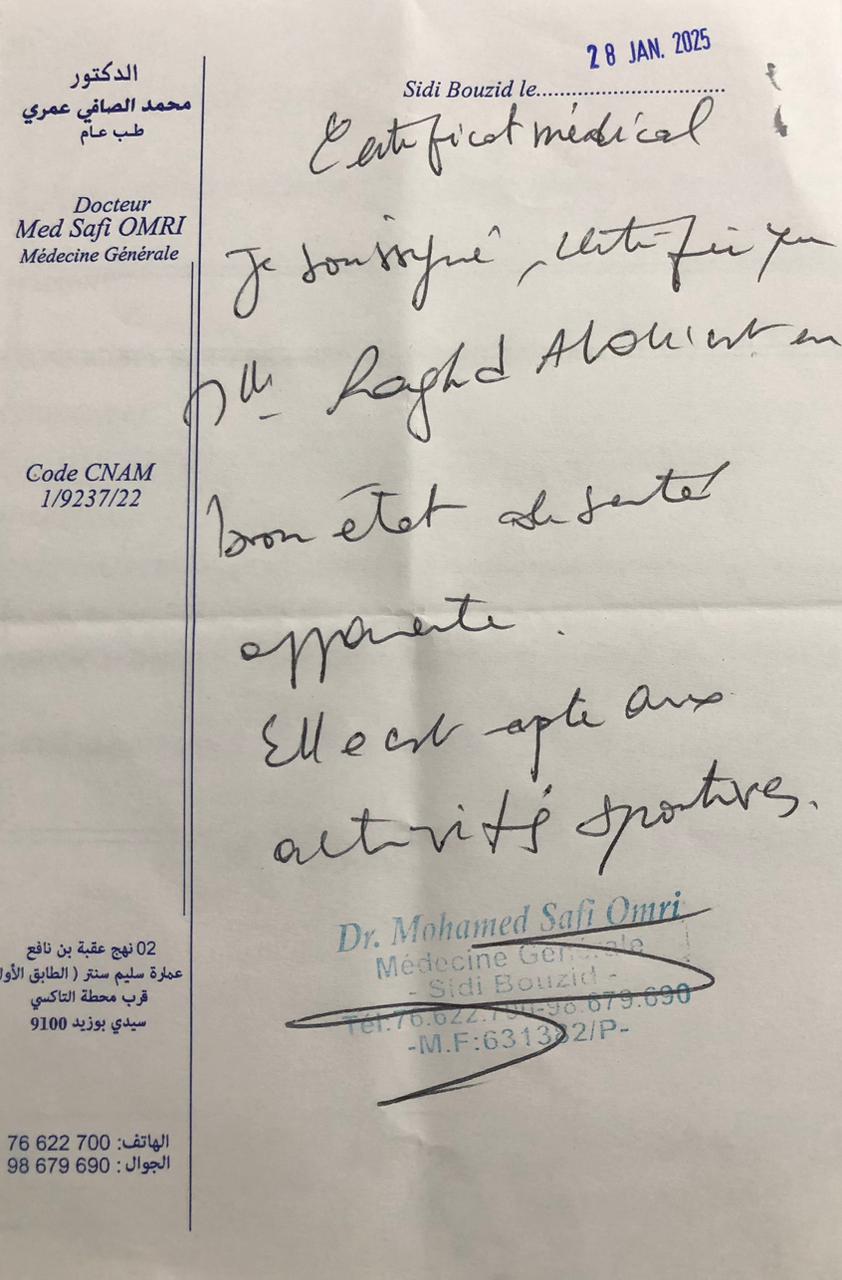 28 JAN. 2025
Sidi Bouzid le
الدكتور
محمد الصافي عمري
طب عام
Docteur
Med Safi OMRI
Médecine Générale
Code CNAM
1/9237/22
Certificat médical
Je soussigné, certifie que
Mlle Raghd est en
bon état de santé
apparente.
Elle est apte aux
activités sportives.
Dr. Mohamed Safi Omri
Médecine Générale
- Sidi Bouzid -
Tél:76.622.700-98.679.690
-M.F:631382/P-
02 نهج عقبة بن نافع
عمارة سليم سنتر ( الطابق الأول
قرب محطة التاكسي
سيدي بوزيد 9100
الهاتف: 76 622 700
الجوال : 98 679 690